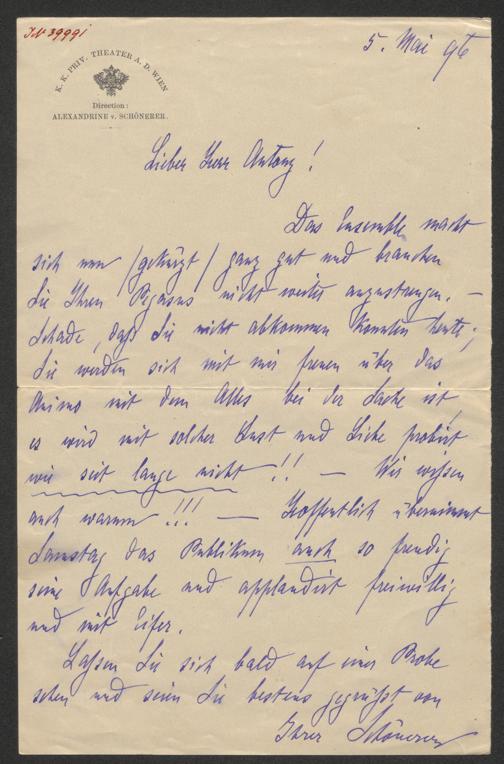 IN 39991
K. K. PRIV. THEATER A. D. WIEN
Direction:
ALEXANDRINE v. SCHÖNERER.
5. Mai 96
Lieber Herr Antony!
Das Ensemble macht
sich nun /gekürzt/ ganz gut und brauchen
Sie Ihren Pegasus nicht weiter anzustrengen. —
Schade, daß Sie nicht abkommen konnten heute;
Sie werden sich mit mir freuen über das
Animo mit dem Alles bei der Sache ist,
es wird mit solcher Lust und Liebe probirt
wie seit lange nicht!! — Wir wissen
auch warum!!! — Hoffentlich übernimmt
Samstag das Publikum auch so freudig
seine Aufgabe und applaudirt freiwillig
und mit Eifer.
Laßen Sie sich bald auf einer Probe
sehen und seien Sie bestens gegrüßt von
Ihrer Schönerer